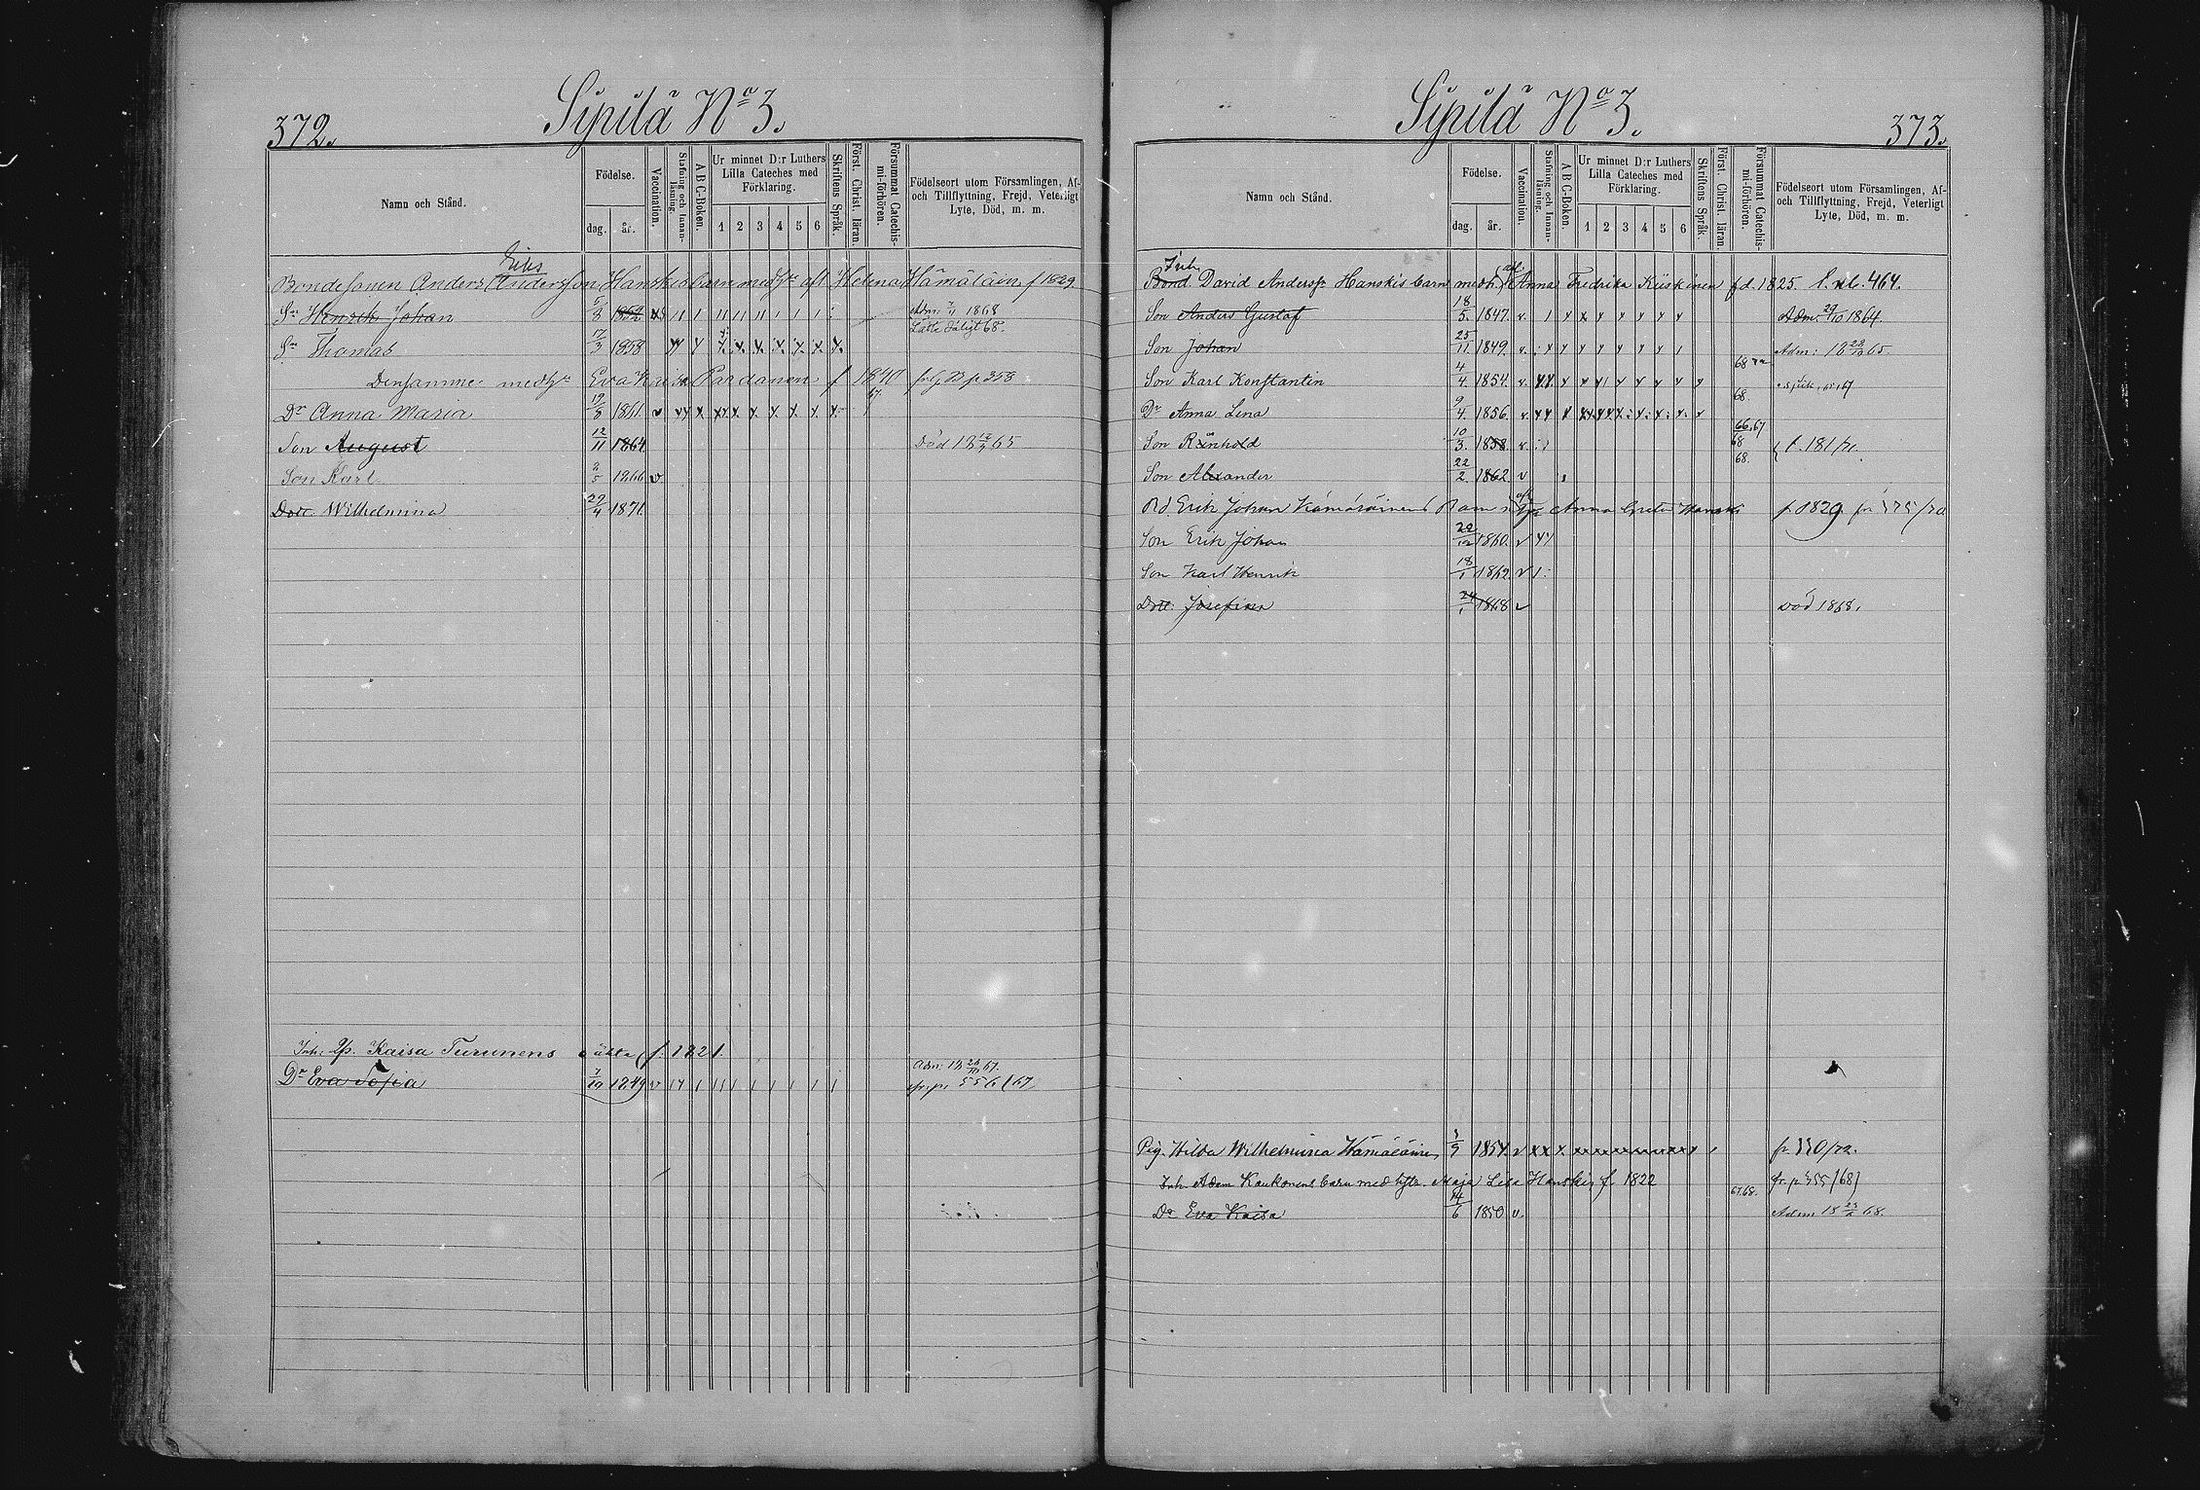 372.
Sipilä No 3.
Namn och Stånd.
Födelse.
dag.
år.
Vaccination.
Stafning och Innan-läsning.
A B C-Boken.
Ur minnet D:r Luthers
Lilla Cateches med
Förklaring.
1 2 3 4 5 6
Skriftens Språk.
Först. Christ. läran.
Försummat Catechis-mi-förhören.
Födelseort utom Församlingen, Af-
och Tillflyttning, Frejd, Veterligt
Lyte, Död, m. m.
Eriks
Bondesonen Anders Andersson Hanskis barn med hu aft Helena Hämäläin f 1829
Sn Henrik Johan 5/3 1852 Adm. 1868
Läste dåligt 68.
Sn Thomas 17/3 1858
Densammes med hu Eva Kaisa Pardanen f 1840 fr p 358
67.
Dr Anna Maria 19/8 1861 v
Son August 12/11 1864 Död 65
Son Karl 2/5 1866 v
Dott. Wilhelmina 29/4 1871
Inh. Kaisa Turunens oäkta f. 1821.
Dr Eva Sofia 7/10 1849 v Adm: 67.
fr. p. 556/67
373.
Sipilä No 3.
Namn och Stånd.
Födelse.
dag.
år.
Vaccination.
Stafning och Innan-läsning.
A B C-Boken.
Ur minnet D:r Luthers
Lilla Cateches med
Förklaring.
1 2 3 4 5 6
Skriftens Språk.
Först. Christ. läran.
Försummat Catechis-mi-förhören.
Födelseort utom Församlingen, Af-
och Tillflyttning, Frejd, Veterligt
Lyte, Död, m. m.
Inh.
Bond David Anderss Hanskis barn med h. Anna Fredrika Kiiskinen fd. 1825. 464.
Son Anders Gustaf 18/5. 1847. v. Adm. 29/10 1864.
Son Johan 25/11 1849. v. Adm: 65.
Son Karl Konstantin 4/4. 1854. v. 68 sjuk 67
Dr Anna Lina 9/4. 1856. v. 68.
Son Reinhold 10/3. 1858. v. 66.67 68
Son Alexander 22/2. 1862 v 68. f. 181/70.
Rd. Erik Johan Kämäräinens Barn Anna Greta Hanski f. 1829. fr 375/70
Son Erik Johan 22/12 1860. v
Son Karl Henrik 18/1 1862 v
Dott. Josefina 24/1 1868 v Död 1868.
Pig. Hilda Wilhelmina Hämäläinen 3/9 1854. v fr 330/72.
Inh. Adam Kaukonens barn med hstr. Maja Lisa Hanski, f 1822 fr. p 355/68)
Dr Eva Kaisa 14/6 1850 v. 67.68. Adm 68.